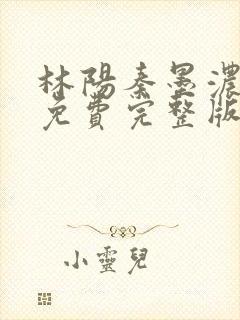 林陽秦墨濃
免費完整版
小靈兒